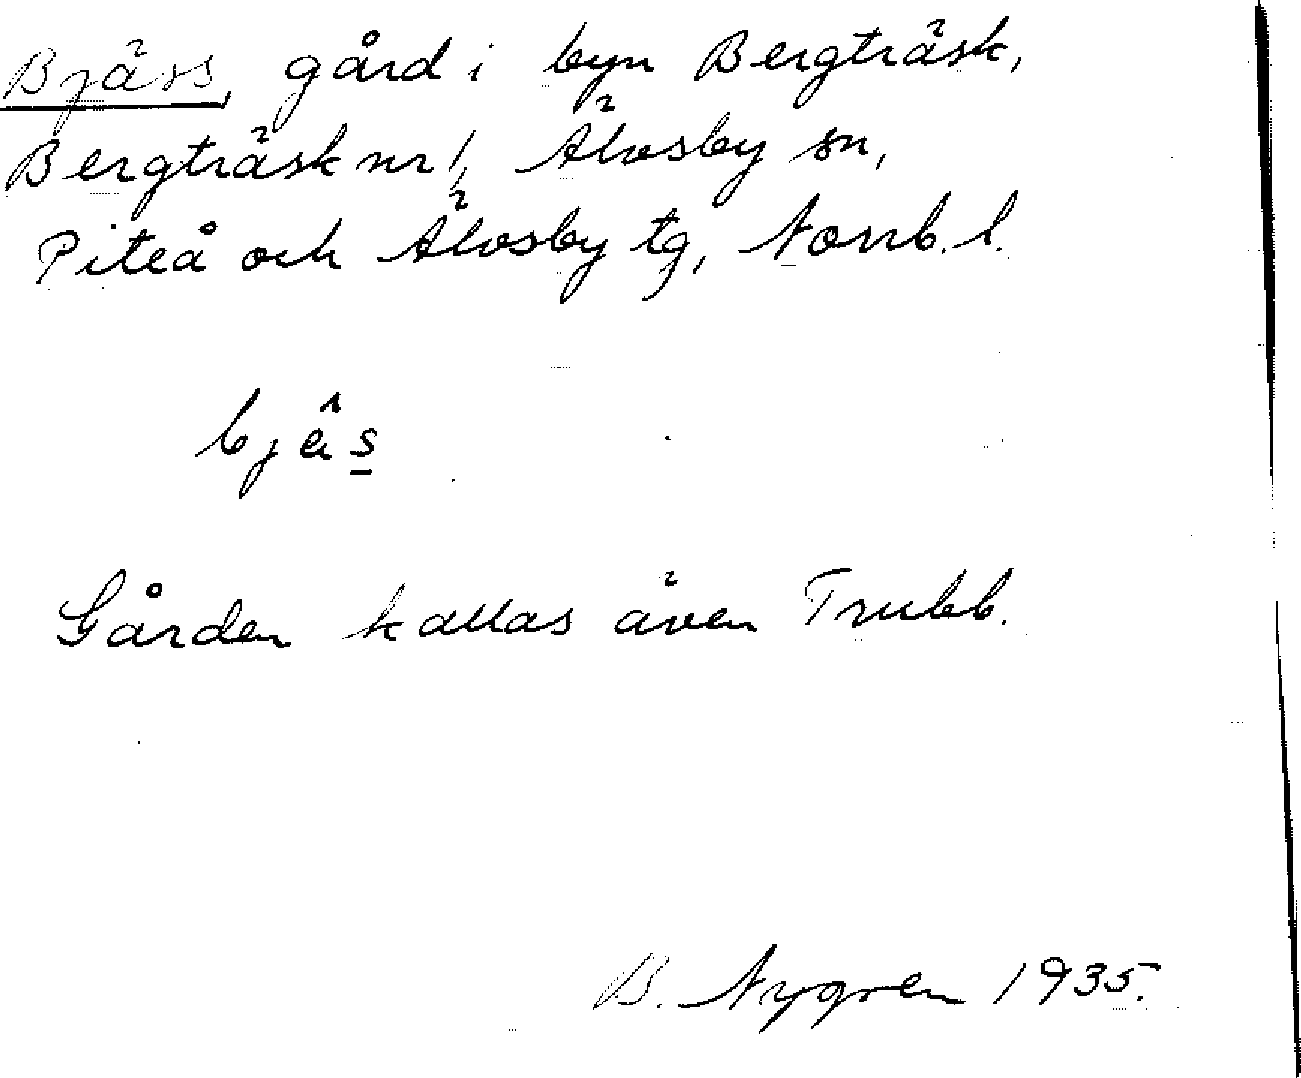 Bjäss, gård i byn Bergträsk,
Bergträsk nr 1, Älvsby sn,
Piteå och Älvsby tg, Norrb. l.
bjâs
Gården kallas även Trubb.
B. Nygren 1935.